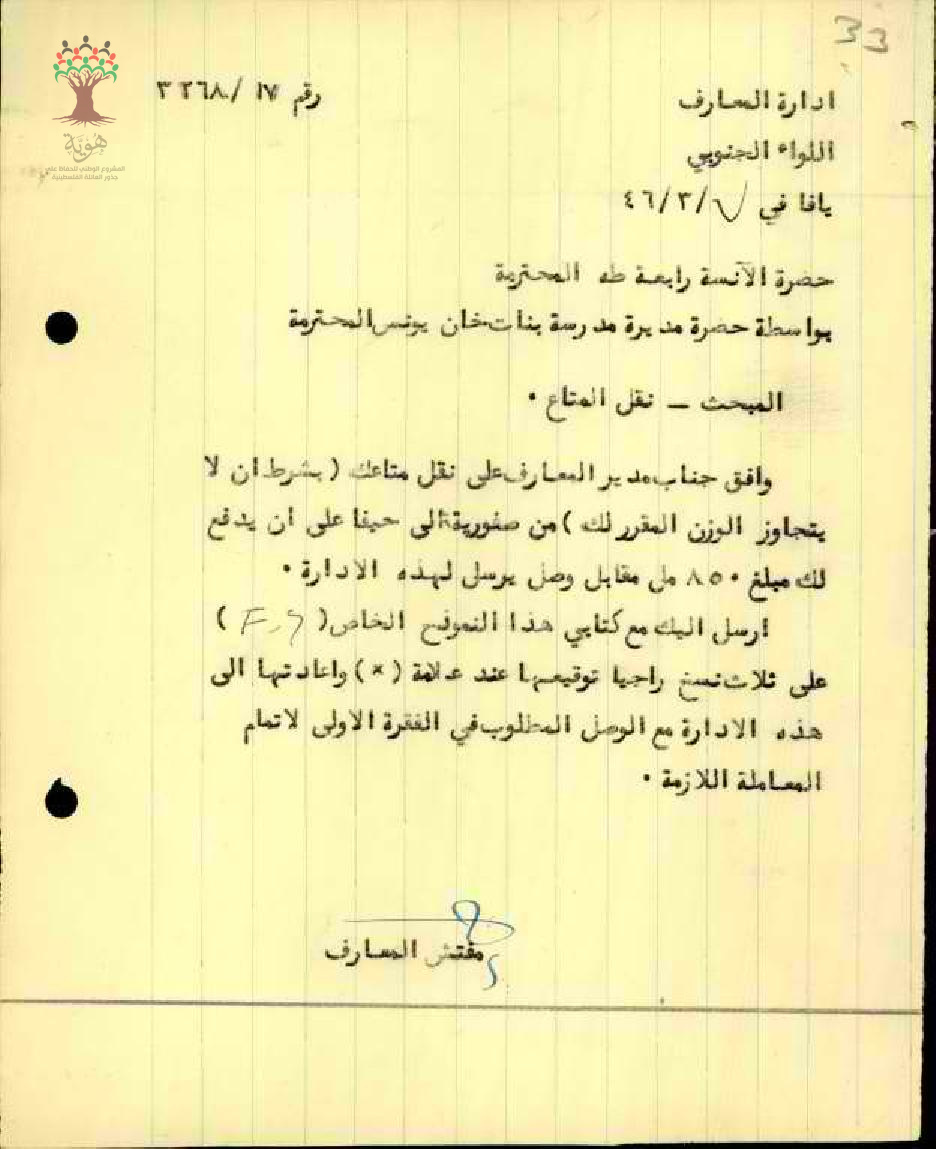 33
ادارة المعارف
رقم ١٧/٣٢٦٨
اللواء الجنوبي
يافا في ٧/٣/٤٦
هُوِيَّة
المشروع الوطني للحفاظ على
جذور العائلة الفلسطينية
حضرة الآنسة رابعة طه المحترمة
بواسطة حضرة مديرة مدرسة بنات خان يونس المحترمة
المبحث – نقل المتاع ٠
وافق جناب مدير المعارف على نقل متاعك ( بشرط ان لا
يتجاوز الوزن المقرر لك ) من صفورية الى حيفا على ان يدفع
لك مبلغ ٨٥٠ مل مقابل وصل يرسل لهذه الادارة ٠
ارسل اليك مع كتابي هذا النموذج الخاص ( )
على ثلاث نسخ راجيا توقيعها عند علامة (*) واعادتها الى
هذه الادارة مع الوصل المطلوب في الفقرة الاولى لاتمام
المعاملة اللازمة ٠
مفتش المعارف